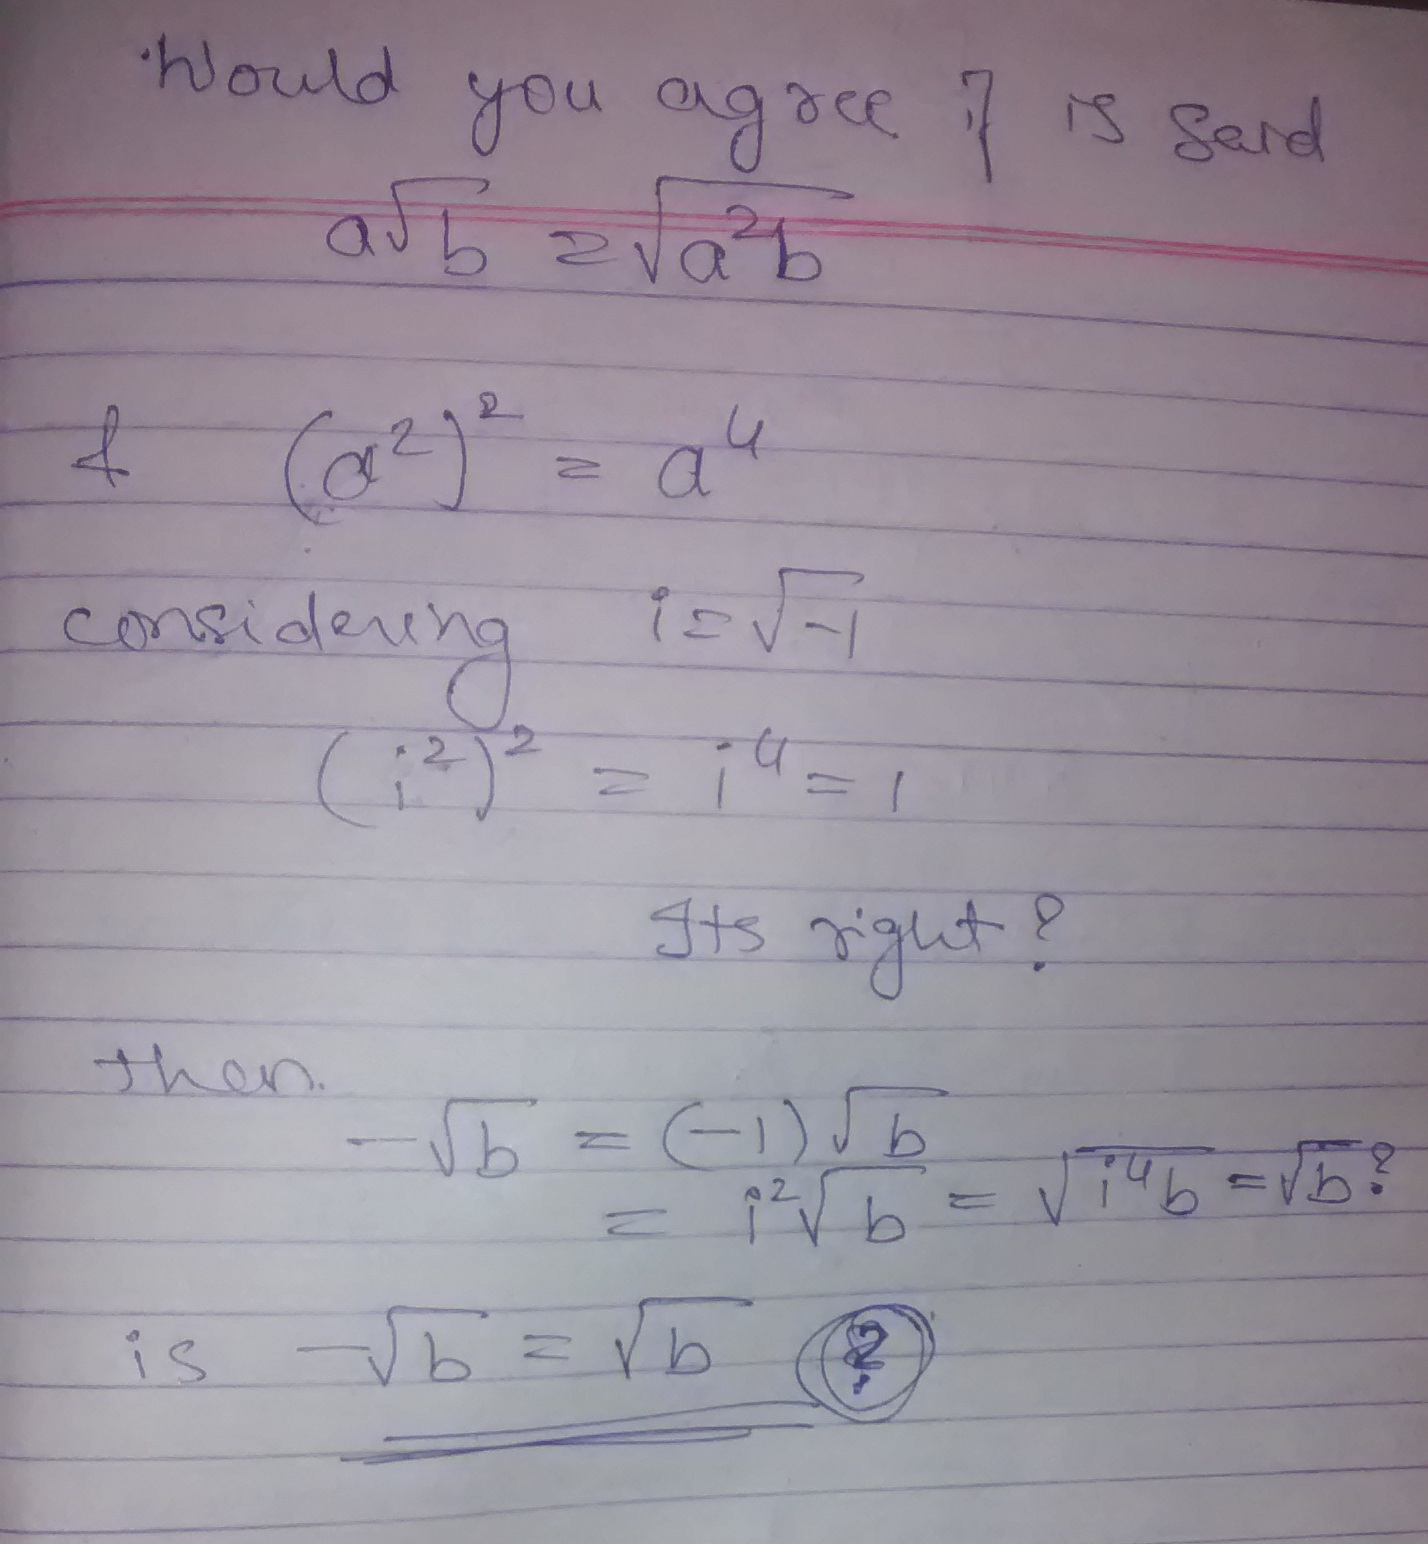 Would you agree if is said
a√b = √a²b
& (a²)² = a⁴
considering i = √-1
(i²)² = i⁴ = 1
Its right?
then.
-√b = (-1)√b
= i²√b = √i⁴b = √b?
is -√b = √b ?